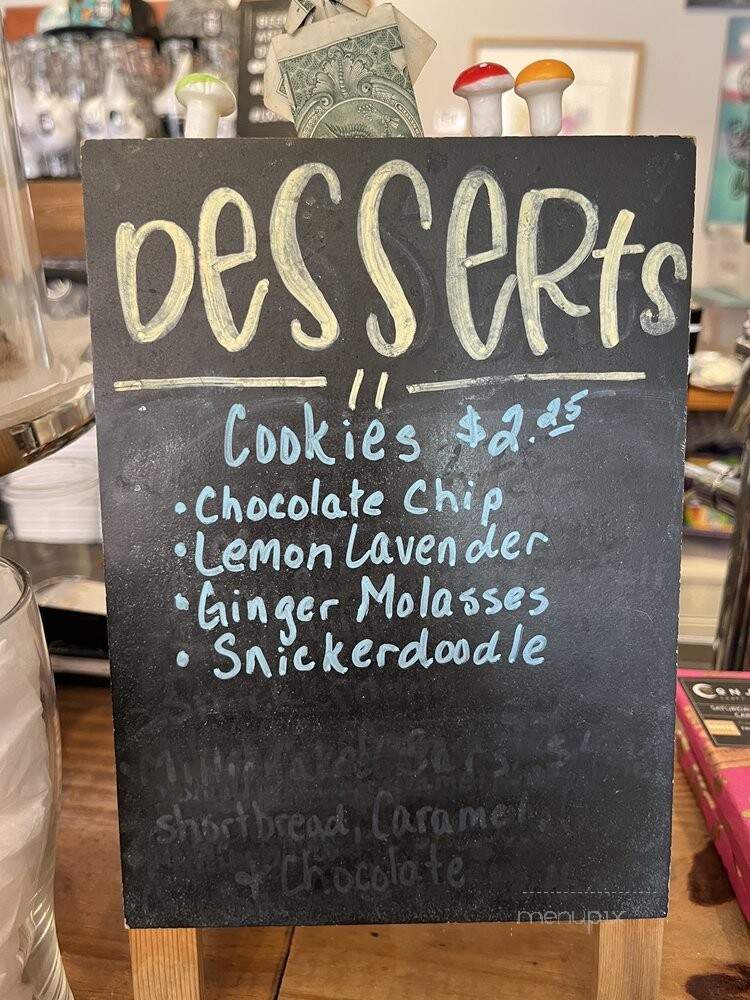 Desserts
Cookies $2.25
• Chocolate Chip
• Lemon Lavender
• Ginger Molasses
• Snickerdoodle
Millionaire Bars $4
shortbread, Caramel,
& Chocolate
menupix